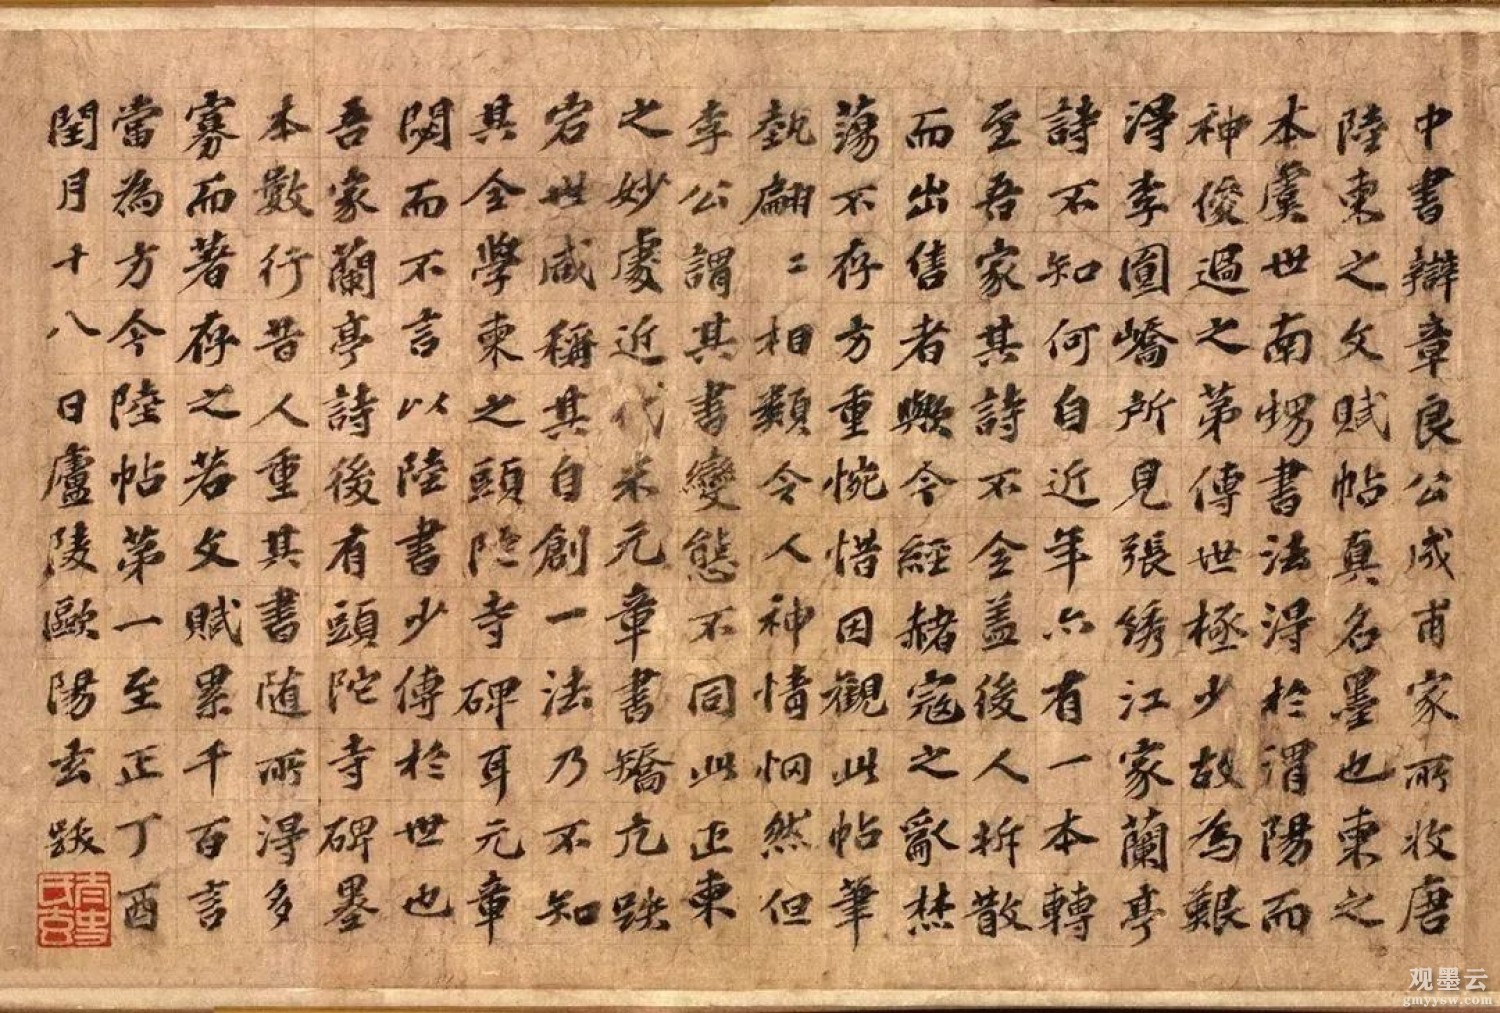 中書辯章良公成甫家所收唐
陸柬之文賦帖真名墨也柬之
本虞世南甥書法得於渭陽而
神俊過之第傳世極少故為艱
得李圖嶠所見張綉江家蘭亭
詩不知何自近年亦有一本轉
至吾家其詩不全盖後人拆散
而出售者歟今經赭寇之亂焚
蕩不存方重惋惜因觀此帖筆
埶翩〻相類令人神情惘然但
李公謂其書變態不同此正柬
之妙處近代米元章書矯亢跌
宕世咸稱其自創一法乃不知
其全學柬之頭陀寺碑耳元章
閟而不言以陸書少傳於世也
吾家蘭亭詩後有頭陀寺碑墨
本數行昔人重其書随所得多
寡而著存之若文賦累千百言
當為方今陸帖第一至正丁酉
閏月十八日廬陵歐陽玄跋
观墨云
gmyysw.com